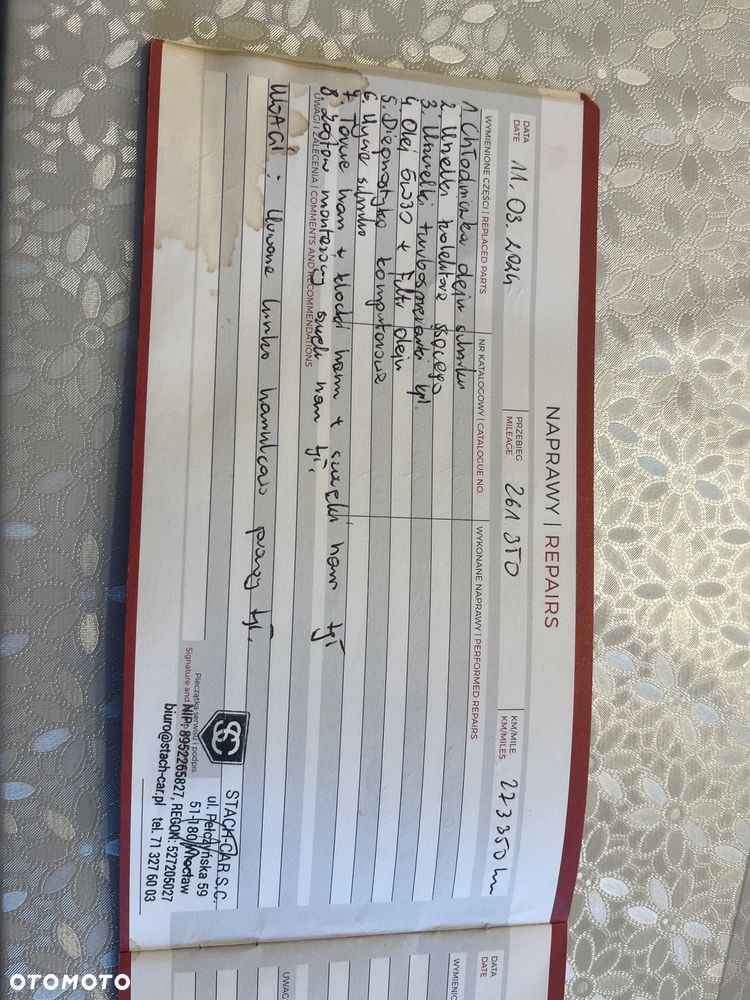 NAPRAWY | REPAIRS
DATA
DATE
11.03.2024
PRZEBIEG
MILEAGE
261 350
KM/MILE
KM/MILES
273 350 km
WYMIENIONE CZĘŚCI | REPLACED PARTS
NR KATALOGOWY | CATALOGUE NO.
WYKONANE NAPRAWY | PERFORMED REPAIRS
1. Chłodniczka oleju silnika
2. Uszczelki kolektora ssącego
3. Uszczelki turbosprężarki kpl.
4. Olej 5W30 + Filtr oleju
5. Diagnostyka komputerowa
6. Mycie silnika
7. Tarcze ham + klocki ham + szczęki ham tył
8. Zestaw montażowy szczęk ham tył.
UWAGI I ZALECENIA | COMMENTS AND RECOMMENDATIONS
UWAGI: linka prawy tył.
Pieczątka serwisu i podpis
Signature and
SC
STACH-CAR S.C.
ul. Pełczyńska 59
51-180 Wrocław
NIP: 8952265827, REGON: 527205027
biuro@stach-car.pl tel. 71 327 60 03
DATA
DATE
WYMIENIO
UWAG
OTOMOTO